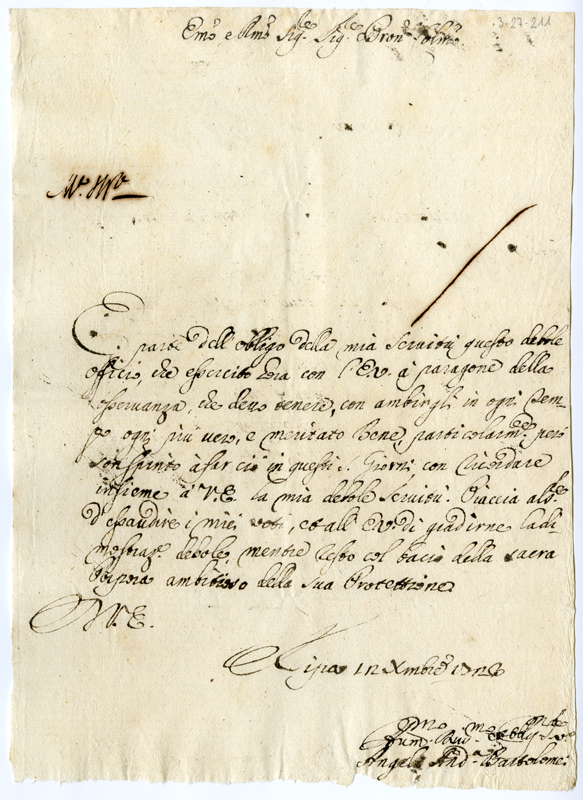 3-27-211
Emo e Rmo Sigre Sigre Pron Colmo
E parte dell obligo della mia servitù questo debole
officio, che essercito hora con l'E.V. à paragone della
osservanza, che devo tenere, con ambirgli in ogni tem-
po ogni più vero, e meritato Bene, particolarmte però
son spinto à far ciò in questi s. Giorni con ricordare
insieme à V.E. la mia debole servitù. Piaccia al
d'essaudire i miei voti, et all' E.V. di gradirne la di-
mostraz. debole, mentre resto col bacio della sacra
Porpora ambitioso della sua Protettione
D V. E.
Ripa 12 Xmbre
Angelo Anda Bartolomei